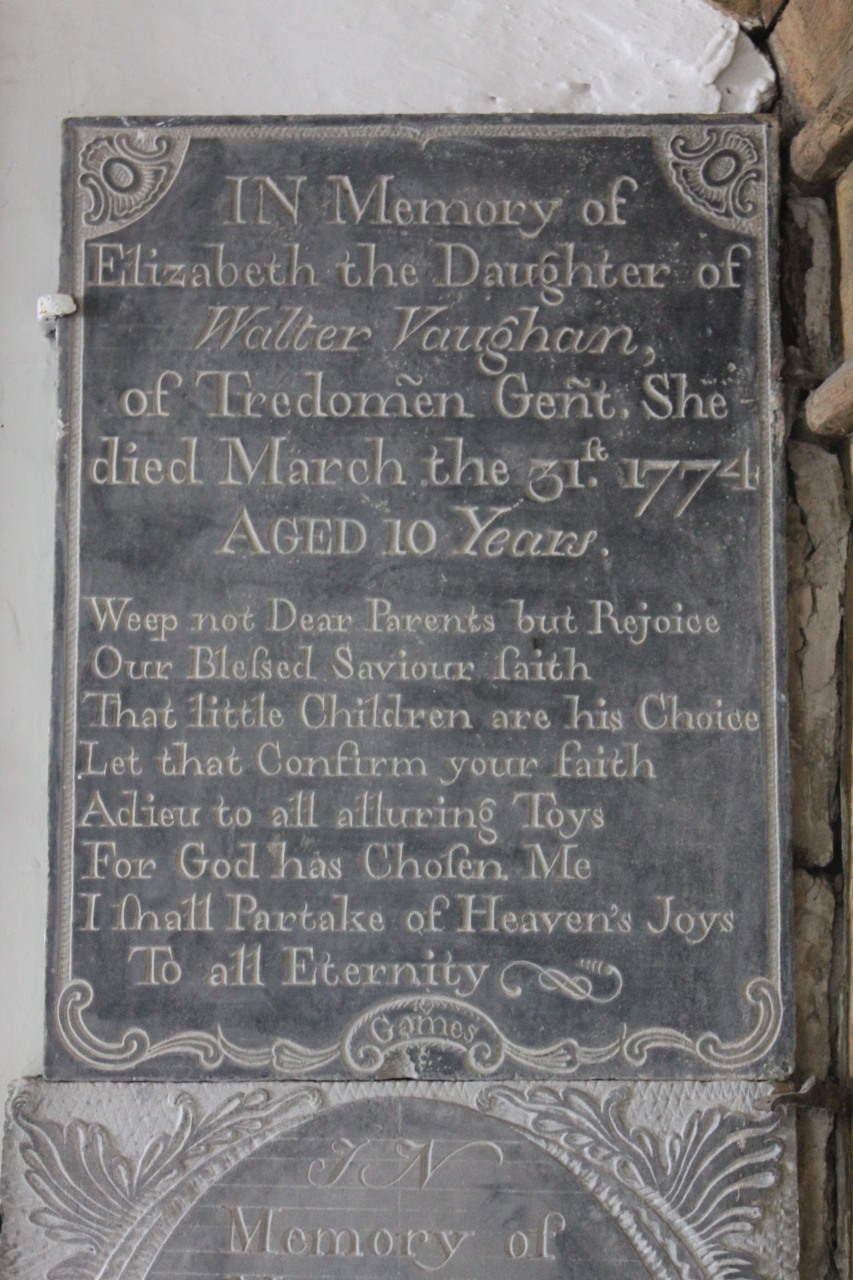 IN Memory of
Elizabeth the Daughter of
Walter Vaughan,
of Tredom̃en Geñt. She
died March the 31.ſt 1774
AGED 10 Years.
Weep not Dear Parents but Rejoice
Our Bleſsed Saviour ſaith
That little Children are his Choice
Let that Confirm your faith
Adieu to all alluring Toys
For God has Choſen Me
I ſhall Partake of Heaven's Joys
To all Eternity
Games
IN
Memory of